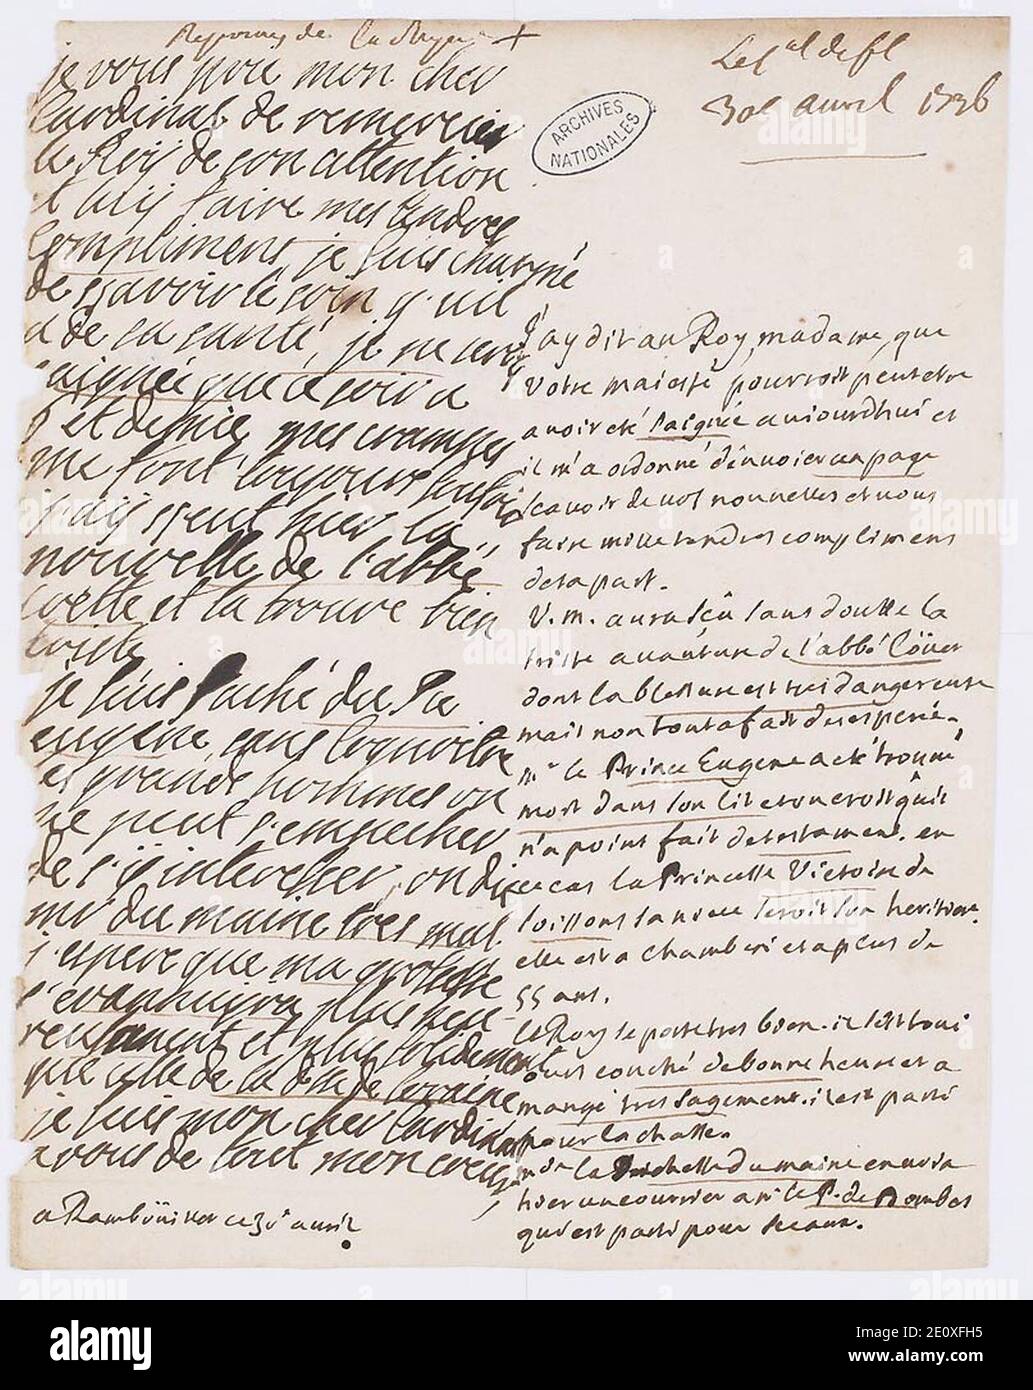 Reponces de la Reyne +
je vous prie mon cher
Cardinal de remercier
le Roy de son attention
et luy faire mes tendres
Compliment, je suis charmé
de sçavoir le soin q'uil
a de sa santé, je ne serai
saignée que ce soir a
5 et demie, mes crampes
me font toujours
j'ay sceut hier la
nouvelle de l'abbé
et la trouve bien
triste
je suis faché du Pce
eugene, sans Coignoitre
les grands hommes on
ne peut s'empecher
de s'y interesser, on dit
mr du maine tres mal
j'espere que ma grosesse
s'evanouira plus heu-
reusement et plus solidement
que celle de la dsse de loraine
je suis mon cher Cardinal
a vous de tout mon coeur
a Rambouillet ce 30e avril
Le Cal de fl
30e avril 1736
ARCHIVES
NATIONALES
J'ay dit au Roy, madame, que
Votre maiesté pourroit peutetre
avoir eté saignée auiourdhui et
il m'a ordonné d'envoier un page
scavoir de vos nouvelles et vous
faire mille tendres complimens
de sa part.
V. m. aura sçû sans doutte la
triste avanture de l'abbé
dont la blessure est tres dangereuse
mais non tout a fait desesperée.
mr le Prince Eugene a eté trouvé
mort dans son lit et on croit qu'il
n'a point fait de testament. en
ce cas la Princesse Victoire de
soissons sa niece seroit son heritiere.
elle est a chamberi et a plus de
55 ans.
le Roy se porte tres bien. il s'est toui
iours couché de bonne heure et a
mangé tres sagement. il est parti
pour la chasse.
mde la Duchesse du maine envoia
hier un courrier a mr le P. de Dombes
qui est parti pour Sceaux.
alamy
Image ID: 2E0XFH5
www.alamy.com